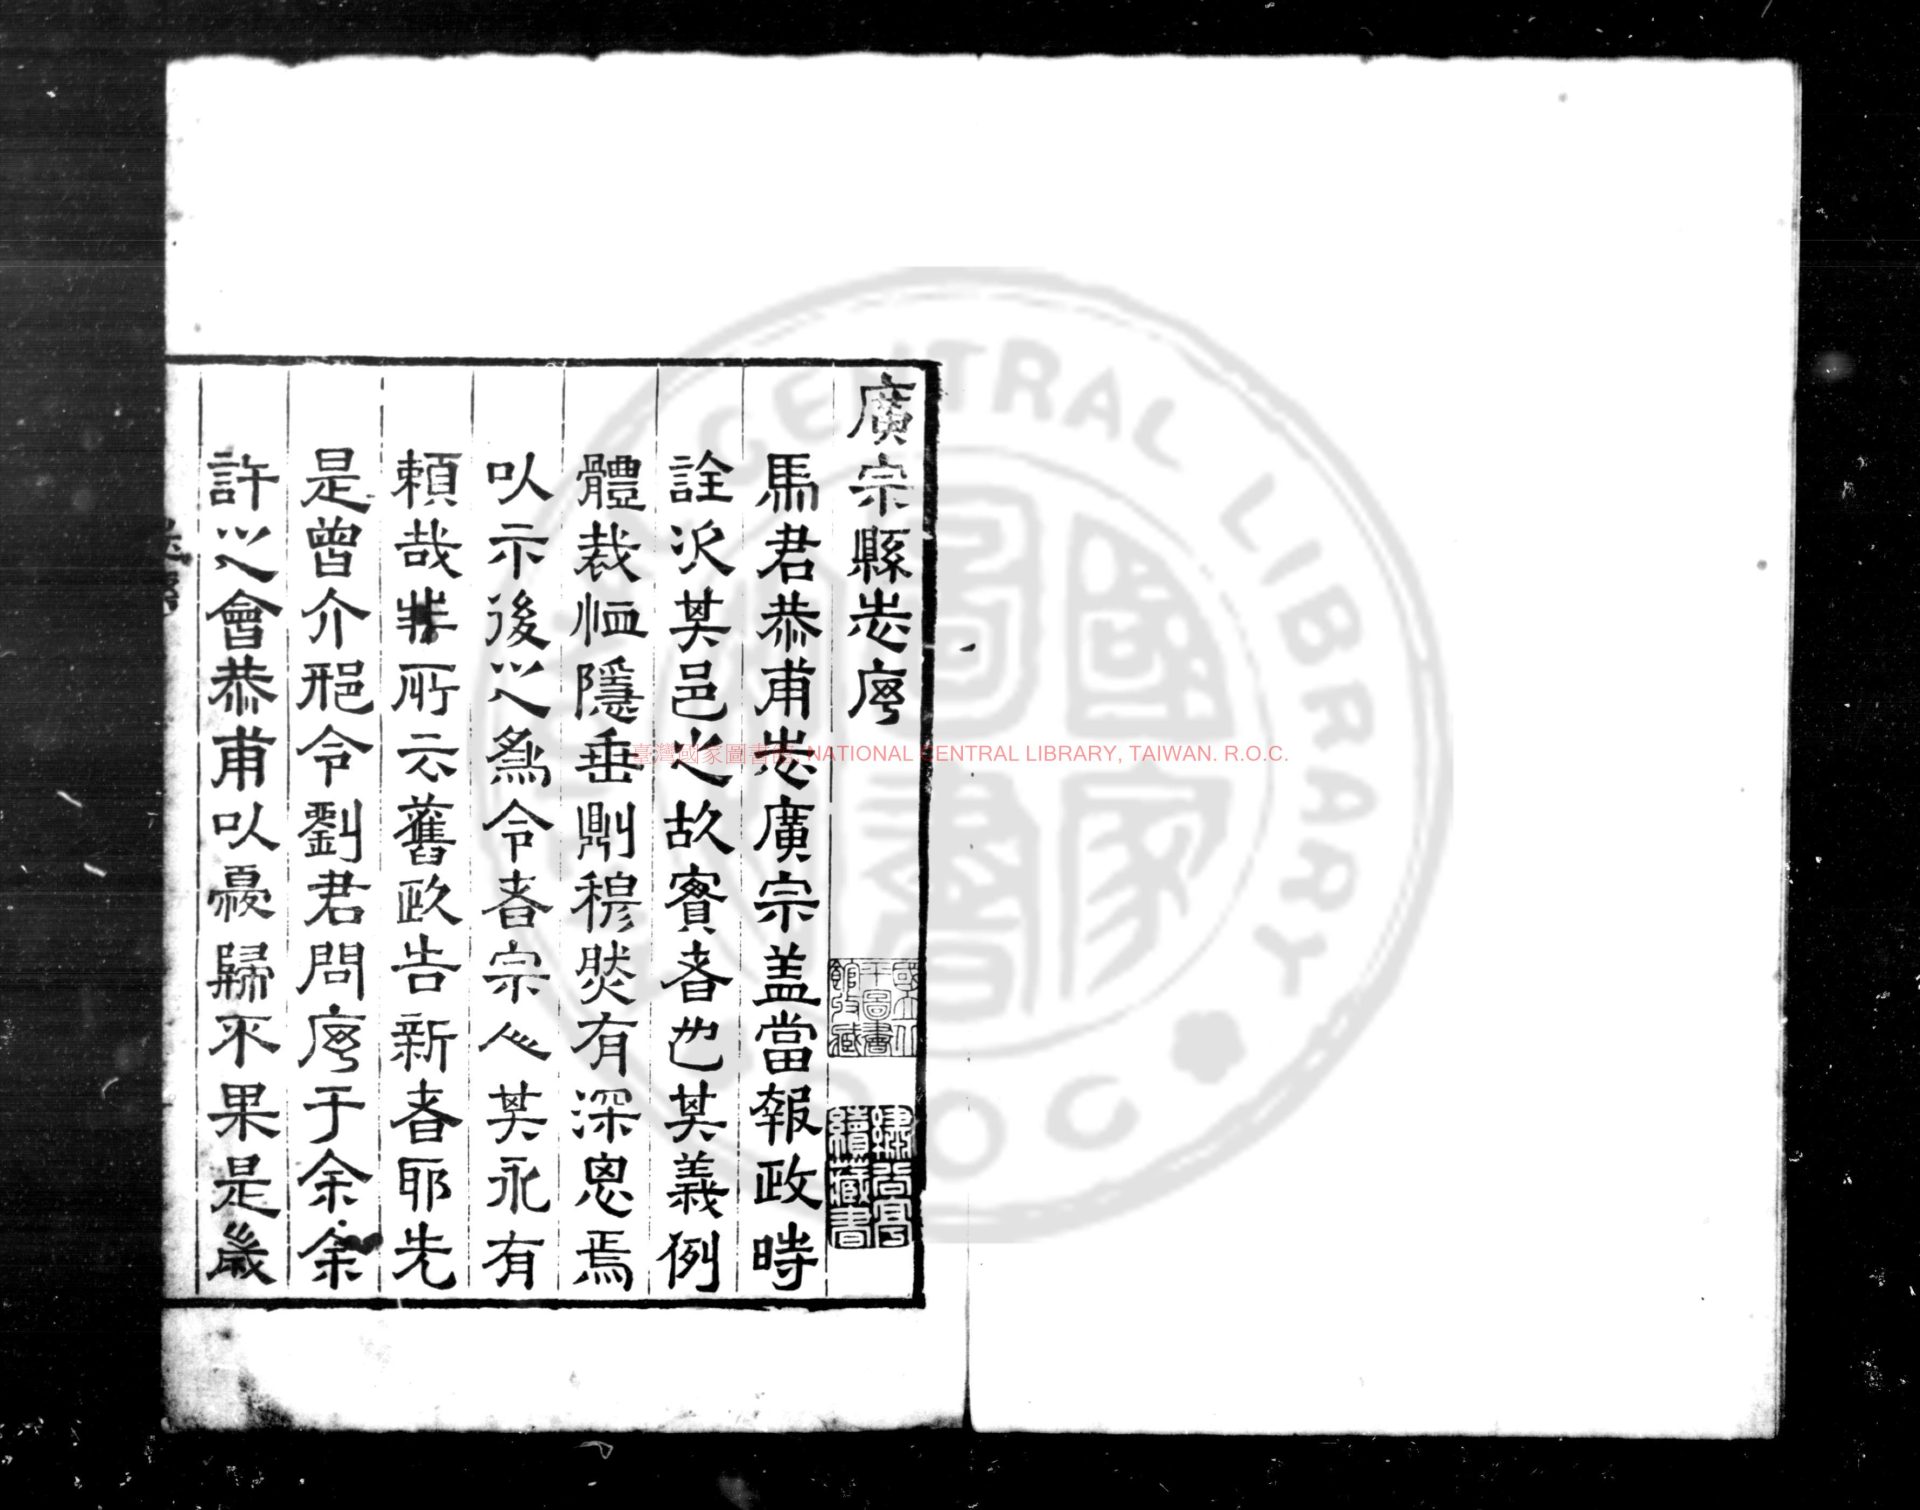 廣宗縣志序
馬君恭甫志廣宗盖當報政時
詮次其邑之故實者也其義例
體裁恤隱垂鼎穆然有深思焉
以示後之為令者宗人其永有
賴哉非所云舊政告新者耶先
是曾介邢令劉君問序于余余
許之會恭甫以憂歸不果是歲
國立北
平圖書
館收藏
續藏書
臺灣國家圖書館, NATIONAL CENTRAL LIBRARY, TAIWAN. R.O.C.
CENTRAL LIBRARY
國家圖書